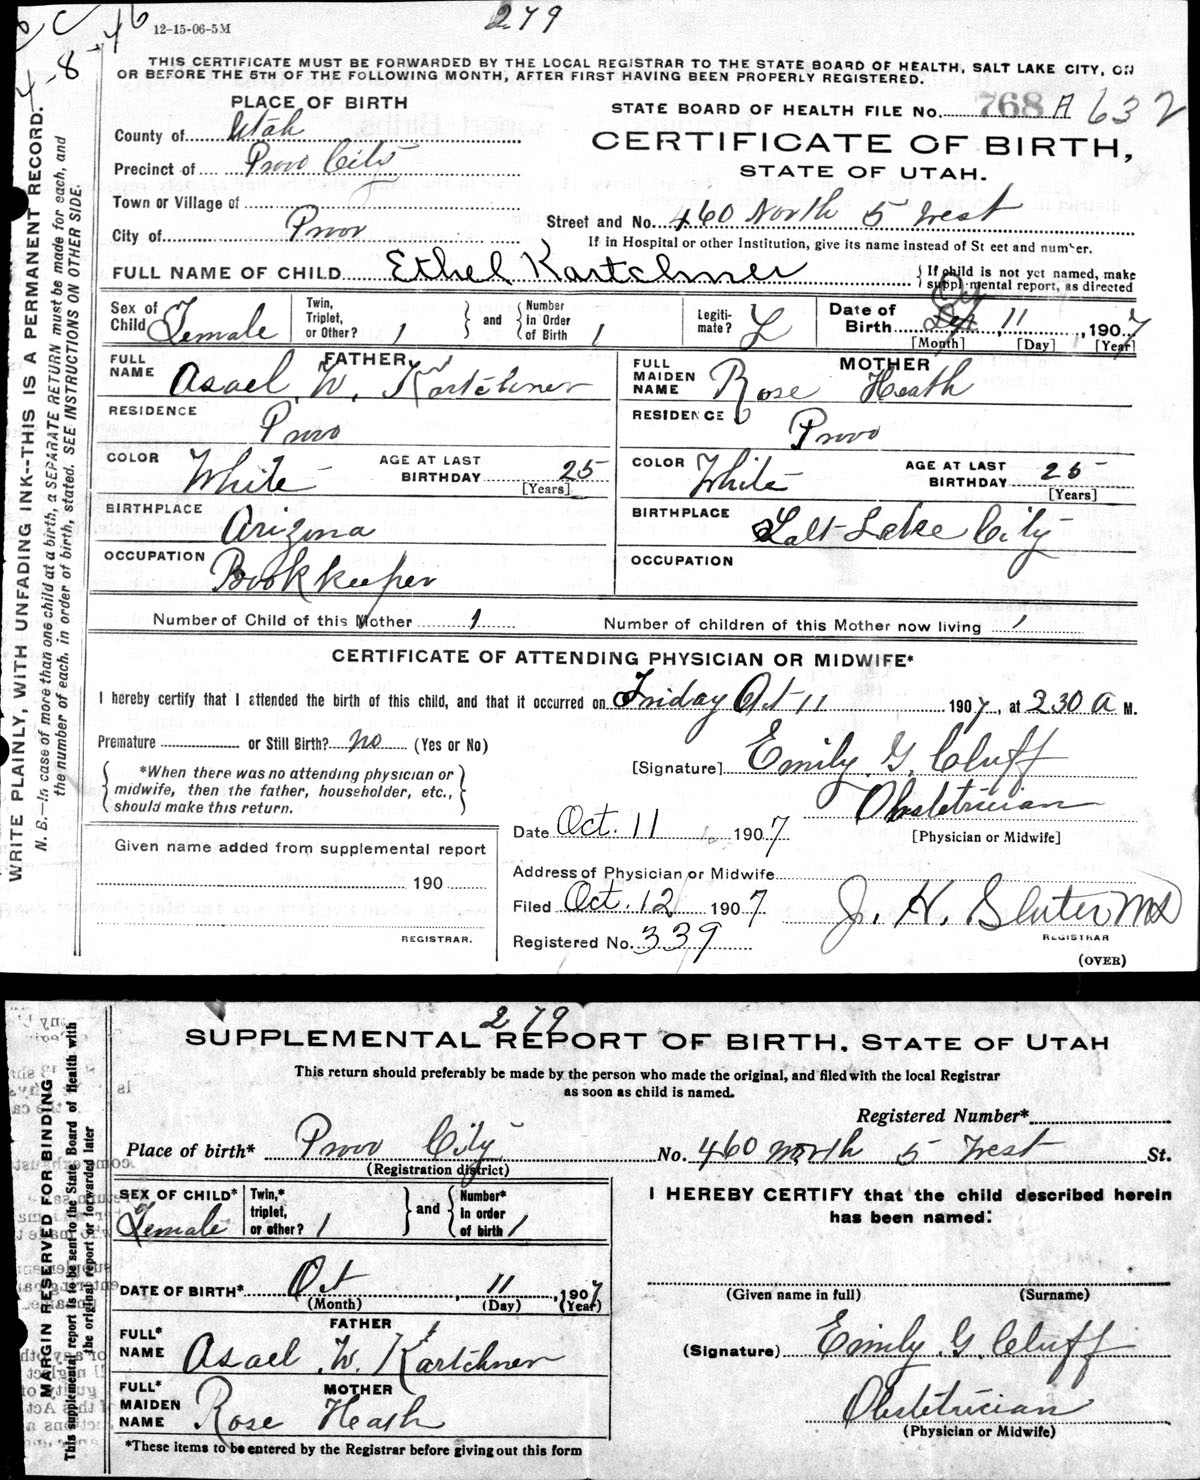 4-8-46
12-15-06-5M
279
THIS CERTIFICATE MUST BE FORWARDED BY THE LOCAL REGISTRAR TO THE STATE BOARD OF HEALTH, SALT LAKE CITY, ON
OR BEFORE THE 5TH OF THE FOLLOWING MONTH, AFTER FIRST HAVING BEEN PROPERLY REGISTERED.
WRITE PLAINLY, WITH UNFADING INK--THIS IS A PERMANENT RECORD.
N. B.—In case of more than one child at a birth, a SEPARATE RETURN must be made for each, and
the number of each, in order of birth, stated. SEE INSTRUCTIONS ON OTHER SIDE.
PLACE OF BIRTH
County of Utah
Precinct of Provo City
Town or Village of
City of Provo
STATE BOARD OF HEALTH FILE No. 768 A 632
CERTIFICATE OF BIRTH,
STATE OF UTAH.
Street and No. 460 North 5 West
If in Hospital or other Institution, give its name instead of St eet and number.
FULL NAME OF CHILD Ethel Kartchner
If child is not yet named, make
suppl mental report, as directed
Sex of Child Female
Twin, Triplet, or Other? 1
and
Number in Order of Birth 1
Legiti-mate? L
Date of Birth Oct 11, 1907
[Month] [Day] [Year]
FATHER
FULL NAME Asael W. Kartchner
RESIDENCE Provo
COLOR White AGE AT LAST BIRTHDAY 25
[Years]
BIRTHPLACE Arizona
OCCUPATION Bookkeeper
MOTHER
FULL MAIDEN NAME Rose Heath
RESIDENCE Provo
COLOR White AGE AT LAST BIRTHDAY 25
[Years]
BIRTHPLACE Salt Lake City
OCCUPATION
Number of Child of this Mother 1 Number of children of this Mother now living 1
CERTIFICATE OF ATTENDING PHYSICIAN OR MIDWIFE*
I hereby certify that I attended the birth of this child, and that it occurred on Friday Oct 11 1907, at 230 a M.
Premature or Still Birth? no (Yes or No)
*When there was no attending physician or
midwife, then the father, householder, etc.,
should make this return.
[Signature] Emily G. Cluff
Obstetrician
[Physician or Midwife]
Date Oct. 11 1907
Given name added from supplemental report
190
REGISTRAR.
Address of Physician or Midwife
Filed Oct. 12 1907
J. H. Sluter MD
REGISTRAR
Registered No. 339
(OVER)
279
SUPPLEMENTAL REPORT OF BIRTH, STATE OF UTAH
This return should preferably be made by the person who made the original, and filed with the local Registrar
as soon as child is named.
MARGIN RESERVED FOR BINDING
This supplemental report is to be sent to the State Board of Health with
the original report or forwarded later
Registered Number*
Place of birth* Provo City No. 460 North 5 West St.
(Registration district)
SEX OF CHILD* Female
Twin,* triplet, or other? 1
and
Number* In order of birth 1
DATE OF BIRTH* Oct 11, 1907
(Month) (Day) (Year)
FATHER
FULL* NAME Asael W. Kartchner
MOTHER
FULL* MAIDEN NAME Rose Heath
*These items to be entered by the Registrar before giving out this form
I HEREBY CERTIFY that the child described herein
has been named:
(Given name in full) (Surname)
(Signature) Emily G. Cluff
Obstetrician
(Physician or Midwife)